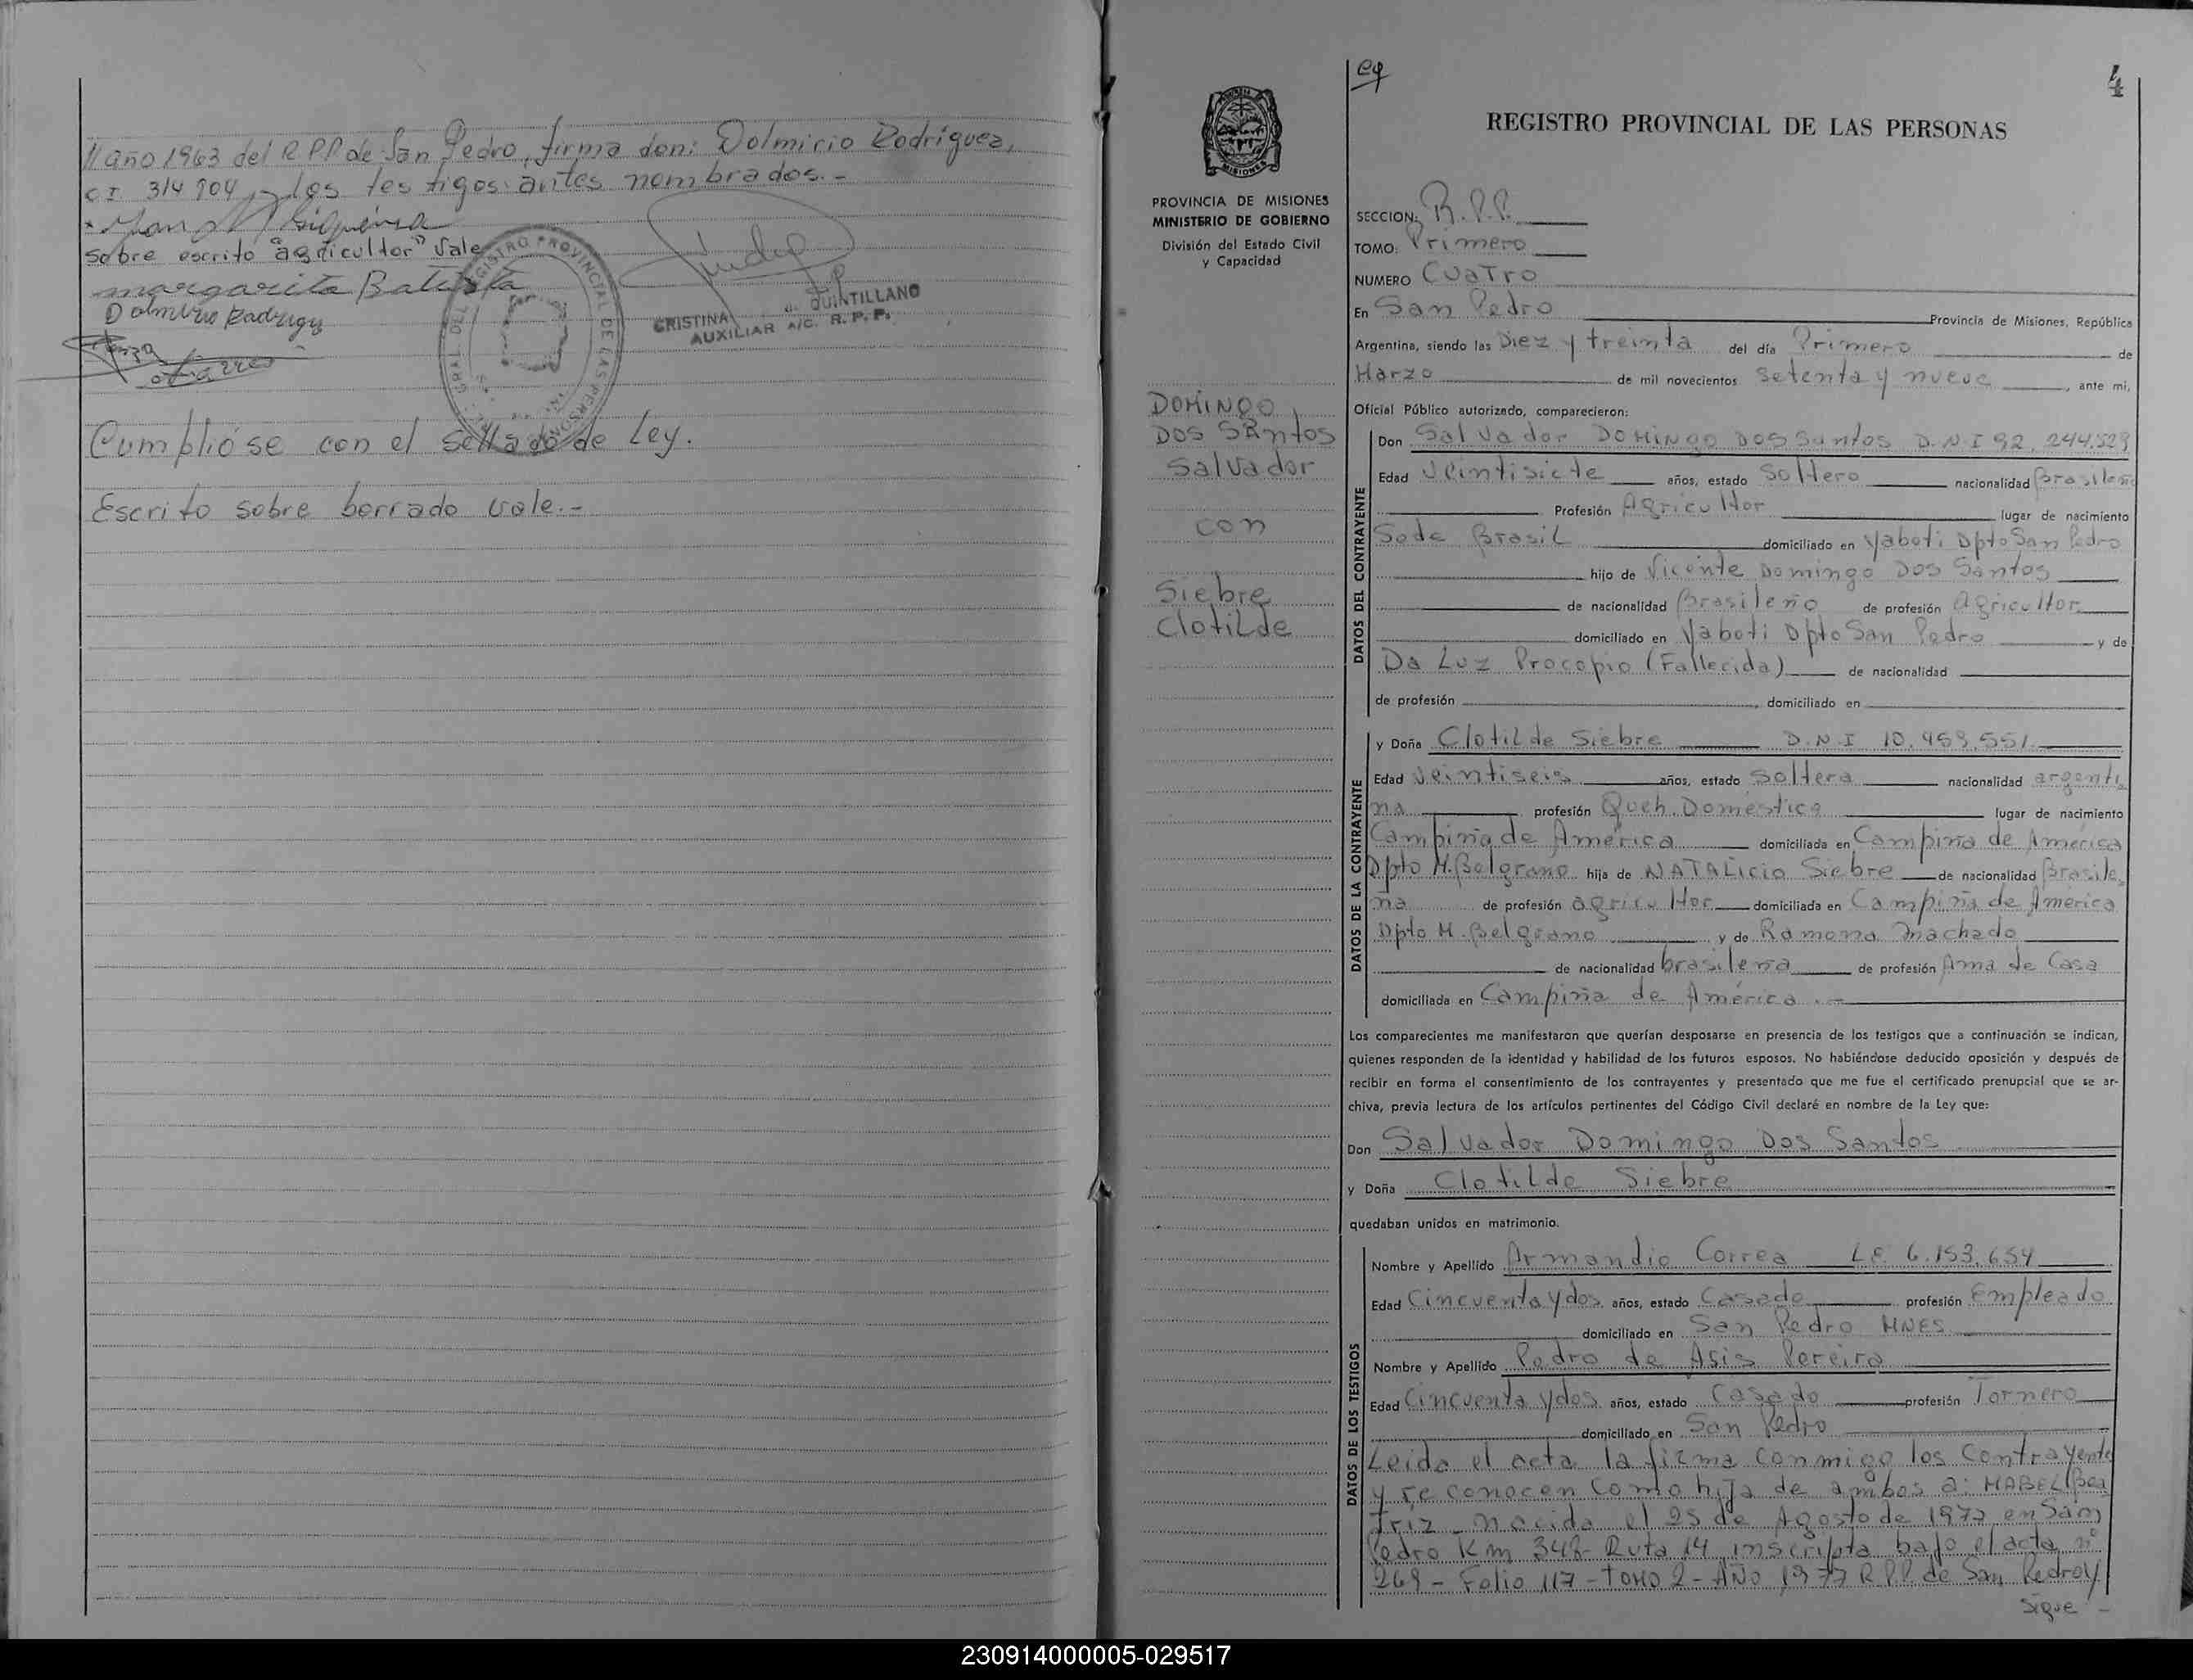 // año 1963 del R.P.P de San Pedro, firma don: Dolmiro Rodríguez,
C.I. 314 904 y los testigos antes nombrados.-
Sobre escrito "agricultor" Vale
margarita Batista
Dolmiro Rodrigz
REGISTRO PROVINCIAL DE LAS PERSONAS
CRISTINA QUINTILLANO
AUXILIAR A/C. R. P. P.
Cumplióse con el sellado de Ley.
Escrito sobre borrado vale.-
4
REGISTRO PROVINCIAL DE LAS PERSONAS
MISIONES
PROVINCIA DE MISIONES
MINISTERIO DE GOBIERNO
División del Estado Civil
y Capacidad
DOMINGO
DOS SANTOS
Salvador
con
Siebre
Clotilde
SECCION: R.P.P.
TOMO: Primero
NUMERO Cuatro
En San Pedro Provincia de Misiones, República
Argentina, siendo las Diez y treinta del día Primero de
Marzo de mil novecientos setenta y nueve, ante mi,
Oficial Público autorizado, comparecieron:
DATOS DEL CONTRAYENTE
Don Salvador DOMINGO DOS Santos D.N.I 92.244.529
Edad Veintisiete años, estado Soltero nacionalidad Brasileño
Profesión Agricultor lugar de nacimiento
Sede Brasil domiciliado en Yaboti Dpto San Pedro
hijo de Vicente Domingo Dos Santos
de nacionalidad Brasileño de profesión Agricultor
domiciliado en Yaboti Dpto San Pedro y de
Da Luz Procopio (Fallecida) de nacionalidad
de profesión , domiciliado en
DATOS DE LA CONTRAYENTE
y Doña Clotilde Siebre D.N.I 10.459.551
Edad Veintiseis años, estado Soltera nacionalidad argenti
na profesión Queh. Domestica lugar de nacimiento
Campiña de América domiciliada en Campiña de América
Dpto M. Belgrano hija de NATALicio Siebre de nacionalidad Brasile
ña de profesión agricultor domiciliada en Campiña de América
Dpto M. Belgrano y de Ramona Machado
de nacionalidad brasileña de profesión Ama de Casa
domiciliada en Campiña de América.-
Los comparecientes me manifestaron que querían desposarse en presencia de los testigos que a continuación se indican,
quienes responden de la identidad y habilidad de los futuros esposos. No habiéndose deducido oposición y después de
recibir en forma el consentimiento de los contrayentes y presentado que me fue el certificado prenupcial que se ar-
chiva, previa lectura de los artículos pertinentes del Código Civil declaré en nombre de la Ley que:
Don Salvador Domingo Dos Santos
y Doña Clotilde Siebre
quedaban unidos en matrimonio.
DATOS DE LOS TESTIGOS
Nombre y Apellido Armandio Correa L.E. 6.153.654
Edad Cincuenta y dos años, estado Casado profesión Empleado
domiciliado en San Pedro MNES
Nombre y Apellido Pedro de Asis Pereira
Edad Cincuenta y dos años, estado Casado profesión Tornero
domiciliado en San Pedro
Leida el acta la firma conmigo los Contrayente
y reconocen como hija de ambos a: MABEL Bea
triz - nacida el 25 de Agosto de 1977 en San
Pedro Km 348- Ruta 14 inscripta bajo el acta nº
269 - Folio 117 - TOMO 2 - AÑO 1977 R.P.P. de San Pedro y
Sigue -
230914000005-029517